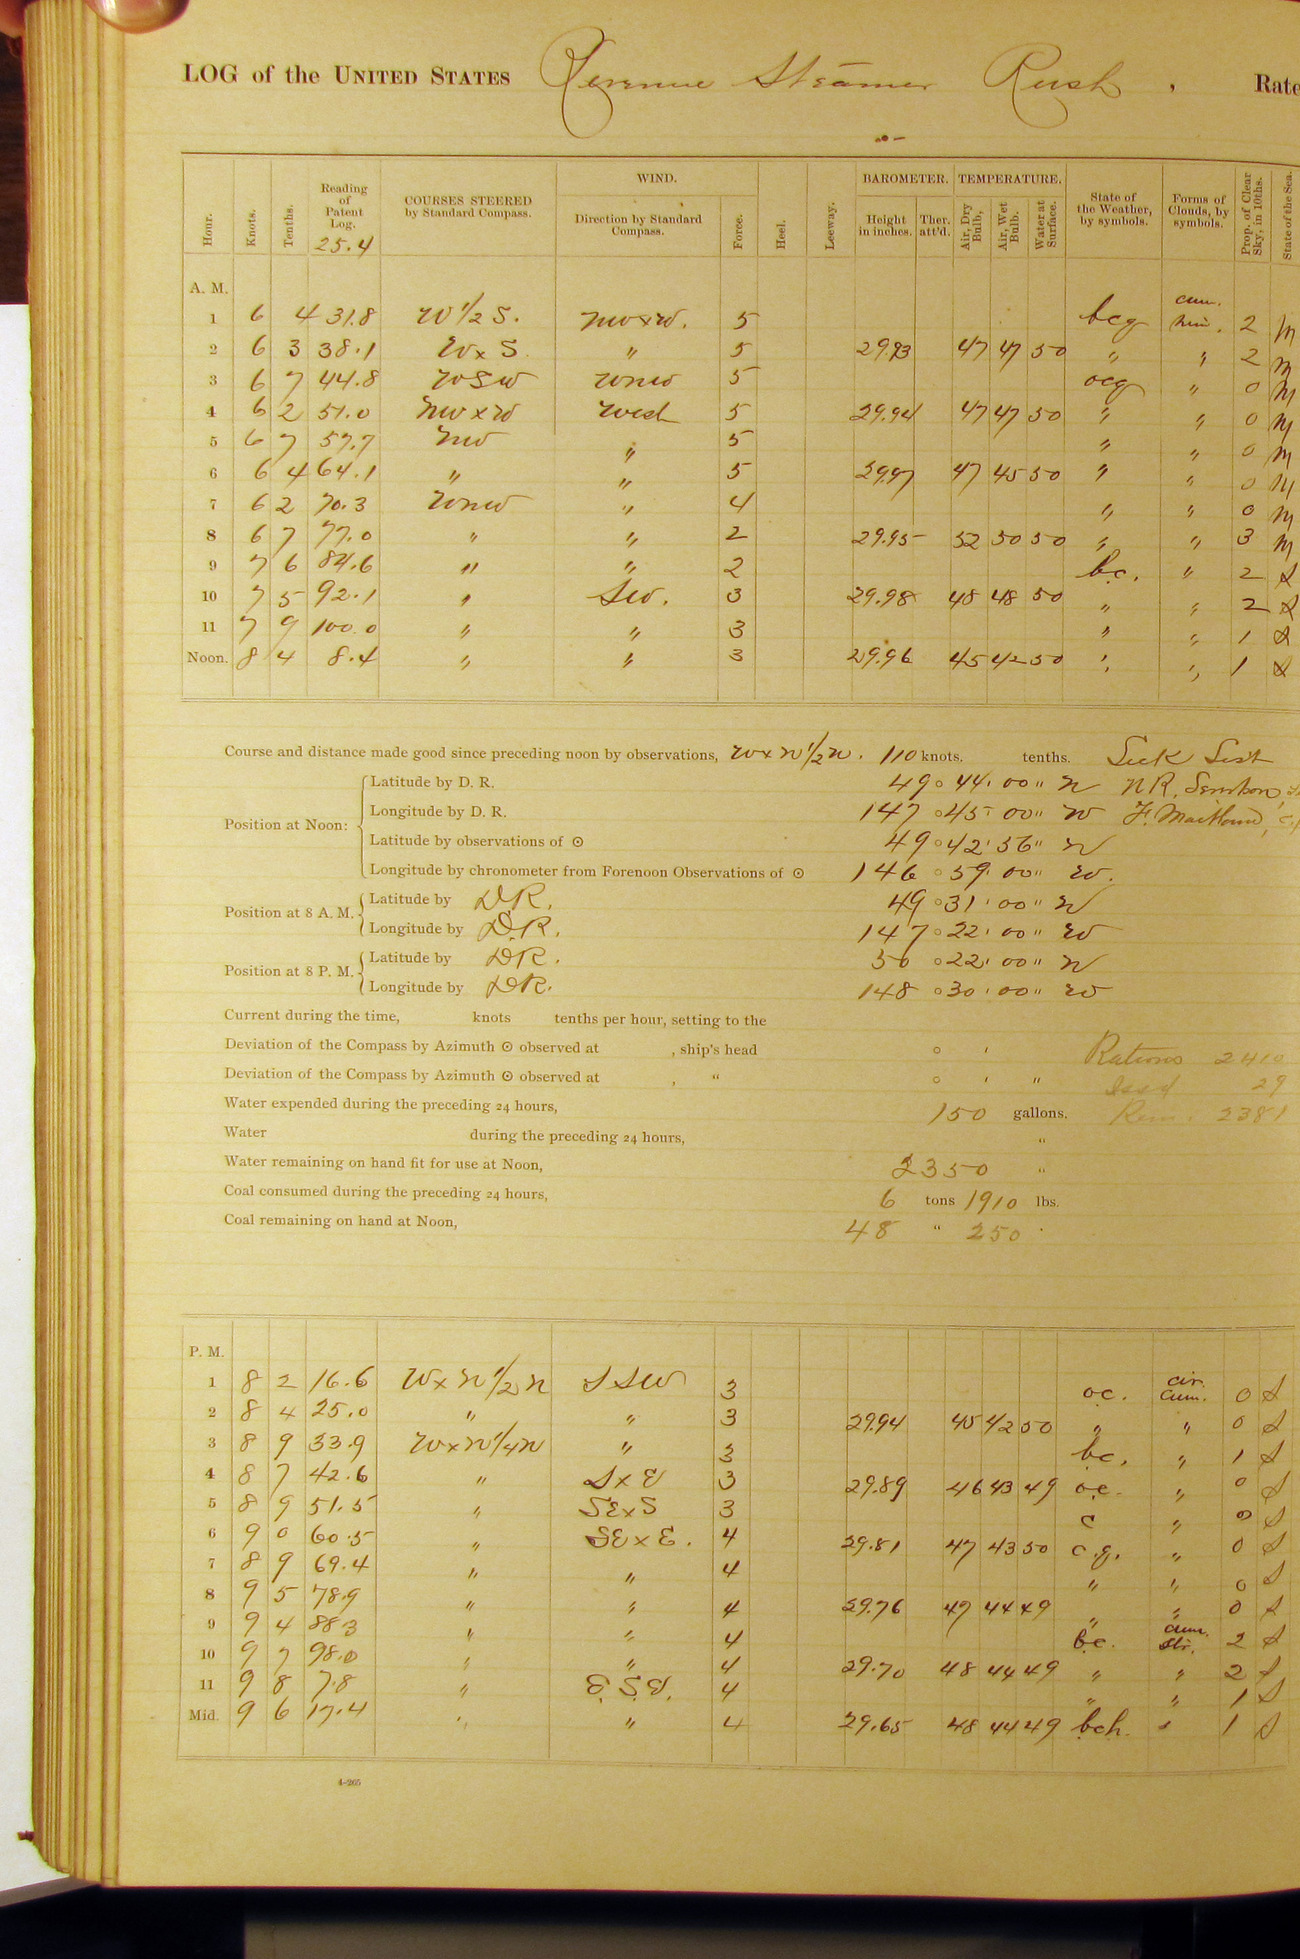 LOG of the UNITED STATES Revenue Steamer Rush , Rate
Hour. Knots. Tenths. Reading of Patent Log. 25.4 COURSES STEERED by Standard Compass. WIND. Direction by Standard Compass. Force. Heel. Leeway. BAROMETER. Height in inches. Ther. att'd. TEMPERATURE. Air, Dry Bulb, Air, Wet Bulb. Water at Surface. State of the Weather, by symbols. Forms of Clouds, by symbols. Prop. of Clear Sky, in 10ths. State of the Sea.
A. M.
1 6 4 31.8 W 1/2 S. NWxW. 5 bcg cum. nim. 2 M
2 6 3 38.1 WxS " 5 29.93 47 47 50 " " 2 M
3 6 7 44.8 WSW WNW 5 ocg " 0 M
4 6 2 51.0 NWxW West 5 29.94 47 47 50 " " 0 M
5 6 7 57.7 NW " 5 " " 0 M
6 6 4 64.1 " " 5 29.97 47 45 50 " " 0 M
7 6 2 70.3 WNW " 4 " " 0 M
8 6 7 77.0 " " 2 29.95 52 50 50 " " 3 M
9 7 6 84.6 " " 2 bc. " 2 S
10 7 5 92.1 " SW. 3 29.98 48 48 50 " " 2 S
11 7 9 100.0 " " 3 " " 1 S
Noon. 8 4 8.4 " " 3 29.96 45 42 50 " " 1 S
Course and distance made good since preceding noon by observations, WxN1/2N. 110 knots. tenths. Sick List
Position at Noon: Latitude by D. R. 49 ° 44 ' 00 " N N R.
Longitude by D. R. 147 ° 45 ' 00 " W F. Maitland,
Latitude by observations of ⊙ 49 ° 42 ' 36 " N
Longitude by chronometer from Forenoon Observations of ⊙ 146 ° 59 ' 00 " W.
Position at 8 A. M. Latitude by D.R. 49 ° 31 ' 00 " N
Longitude by D.R. 147 ° 22 ' 00 " W
Position at 8 P. M. Latitude by D.R. 50 ° 22 ' 00 " N
Longitude by D.R. 148 ° 30 ' 00 " W
Current during the time, knots tenths per hour, setting to the
Deviation of the Compass by Azimuth ⊙ observed at , ship's head ° ' Rations 2410
Deviation of the Compass by Azimuth ⊙ observed at , " ° ' " Issd 29
Water expended during the preceding 24 hours, 150 gallons. Rem. 2381
Water during the preceding 24 hours, "
Water remaining on hand fit for use at Noon, 2350 "
Coal consumed during the preceding 24 hours, 6 tons 1910 lbs.
Coal remaining on hand at Noon, 48 " 250 "
P. M.
1 8 2 16.6 WxN1/2N SSW 3 oc. cir. cum. 0 S
2 8 4 25.0 " " 3 29.94 45 42 50 " " 0 S
3 8 9 33.9 WxN1/4N " 3 bc. " 1 S
4 8 7 42.6 " SxE 3 29.89 46 43 49 oc. " 0 S
5 8 9 51.5 " SExS 3 c " 0 S
6 9 0 60.5 " SExE. 4 29.81 47 43 50 c.g. " 0 S
7 8 9 69.4 " " 4 " " 0 S
8 9 5 78.9 " " 4 29.76 47 44 49 " " 0 S
9 9 4 88.3 " " 4 bc. cum. str. 2 S
10 9 7 98.0 " " 4 29.70 48 44 49 " " 2 S
11 9 8 7.8 " E.S.E. 4 " " 1 S
Mid. 9 6 17.4 " " 4 29.65 48 44 49 bch. " 1 S
4-265